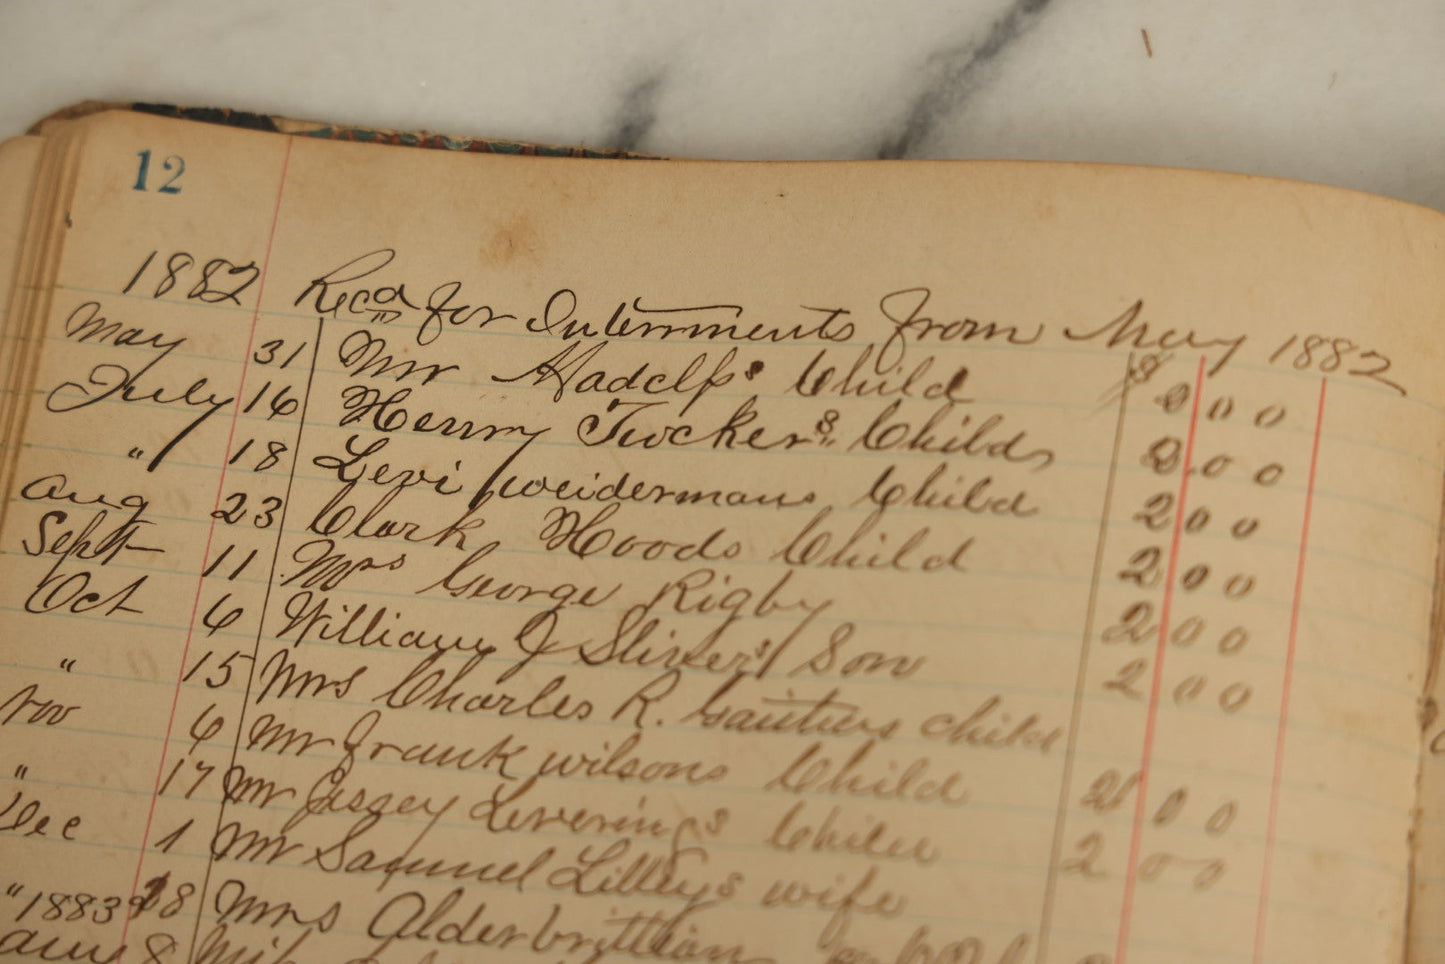 12
1882 Recd for Interrments from May 1882
May 31 Mr Child $ 2 00
July 16 Henry Tucker's Child 2.00
" 18 Levi weidermans Child 2 00
Aug 23 Clark Hoods Child 2 00
Sept 11 Mrs George Rigby 2 00
Oct 6 William J Sliver's Son 2 00
" 15 Mrs Charles R. Gaithers child
Nov 6 Mr Frank wilsons Child 2 00
" 17 Mr Levering's Child 2 00
Dec 1 Mr Samuel Lilley's wife
" 28 Mrs Alderbrittian
1883
8